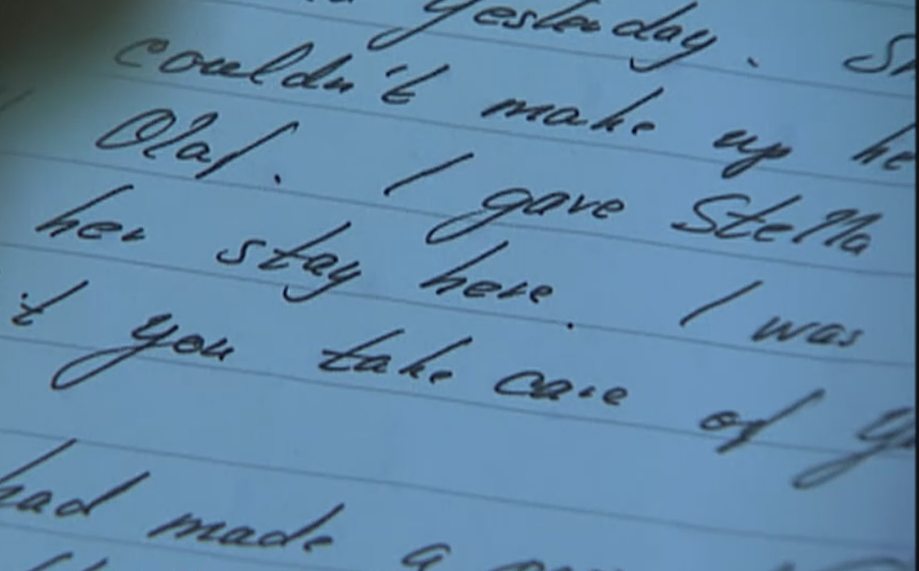 yesterday. S
couldn't make up he
Olaf. I gave Stella
her stay here. I was
t you take care of y
had made a